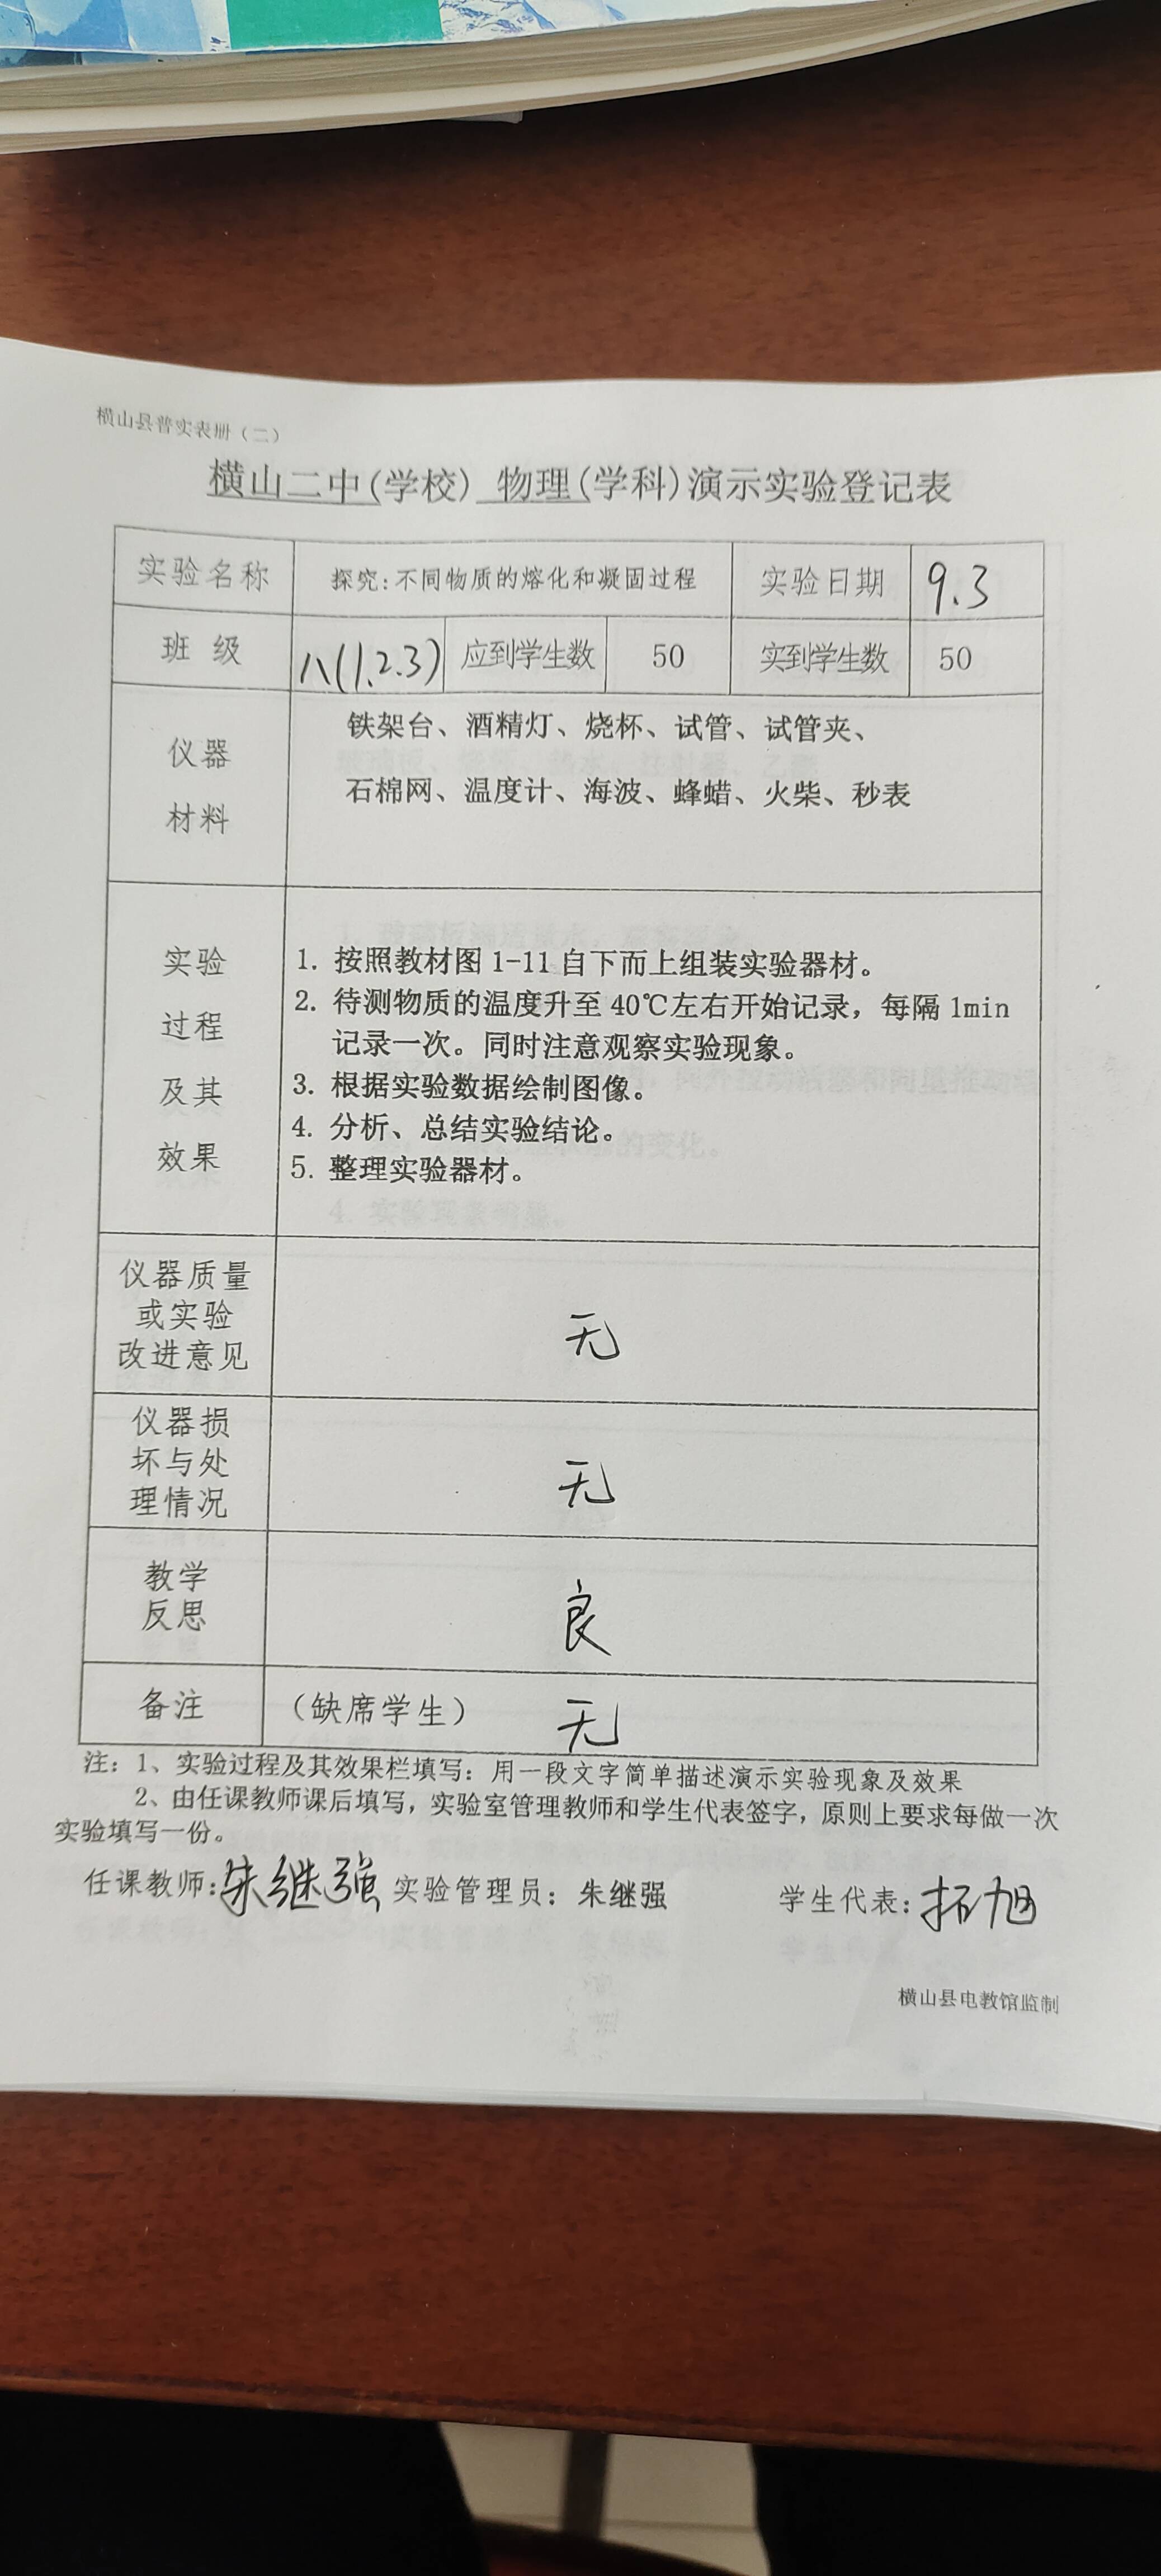 横山县普实表册（二）
横山二中(学校) 物理(学科)演示实验登记表
实验名称 探究:不同物质的熔化和凝固过程 实验日期 9.3
班 级 八(1.2.3) 应到学生数 50 实到学生数 50
仪器
材料
铁架台、酒精灯、烧杯、试管、试管夹、
石棉网、温度计、海波、蜂蜡、火柴、秒表
实验
过程
及其
效果
1. 按照教材图 1-11 自下而上组装实验器材。
2. 待测物质的温度升至 40℃左右开始记录，每隔 1min
记录一次。同时注意观察实验现象。
3. 根据实验数据绘制图像。
4. 分析、总结实验结论。
5. 整理实验器材。
仪器质量
或实验
改进意见
无
仪器损
坏与处
理情况
无
教学
反思
良
备注 （缺席学生） 无
注：1、实验过程及其效果栏填写：用一段文字简单描述演示实验现象及效果
2、由任课教师课后填写，实验室管理教师和学生代表签字，原则上要求每做一次
实验填写一份。
任课教师:朱继强 实验管理员：朱继强 学生代表:拓旭
横山县电教馆监制